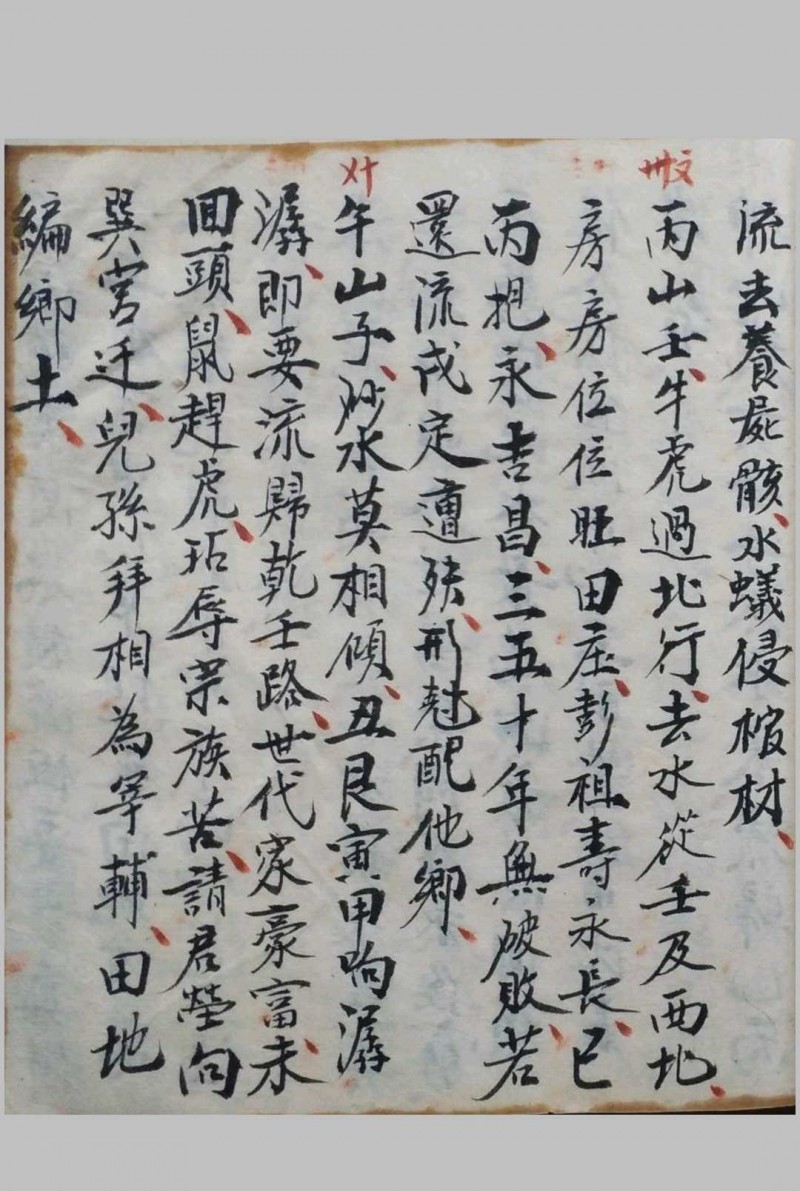 流去養屍骸、水蟻侵棺材、
丙山壬、牛虎過北行、去水從壬及西北、
房房位位旺田庄、彭祖壽永長、已
丙抱、永吉昌、三五十年無破敗、若
還流戌定遭殃、形尅配他鄉、
午山子、砂水莫相傾、丑艮寅甲响潺
潺、即要流歸乾壬路、世代家豪富、未
回頭、鼠趕虎、玷辱宗族苦、請君塋向
巽宮迁、兒孫拜相為宰輔、田地
編鄉土、